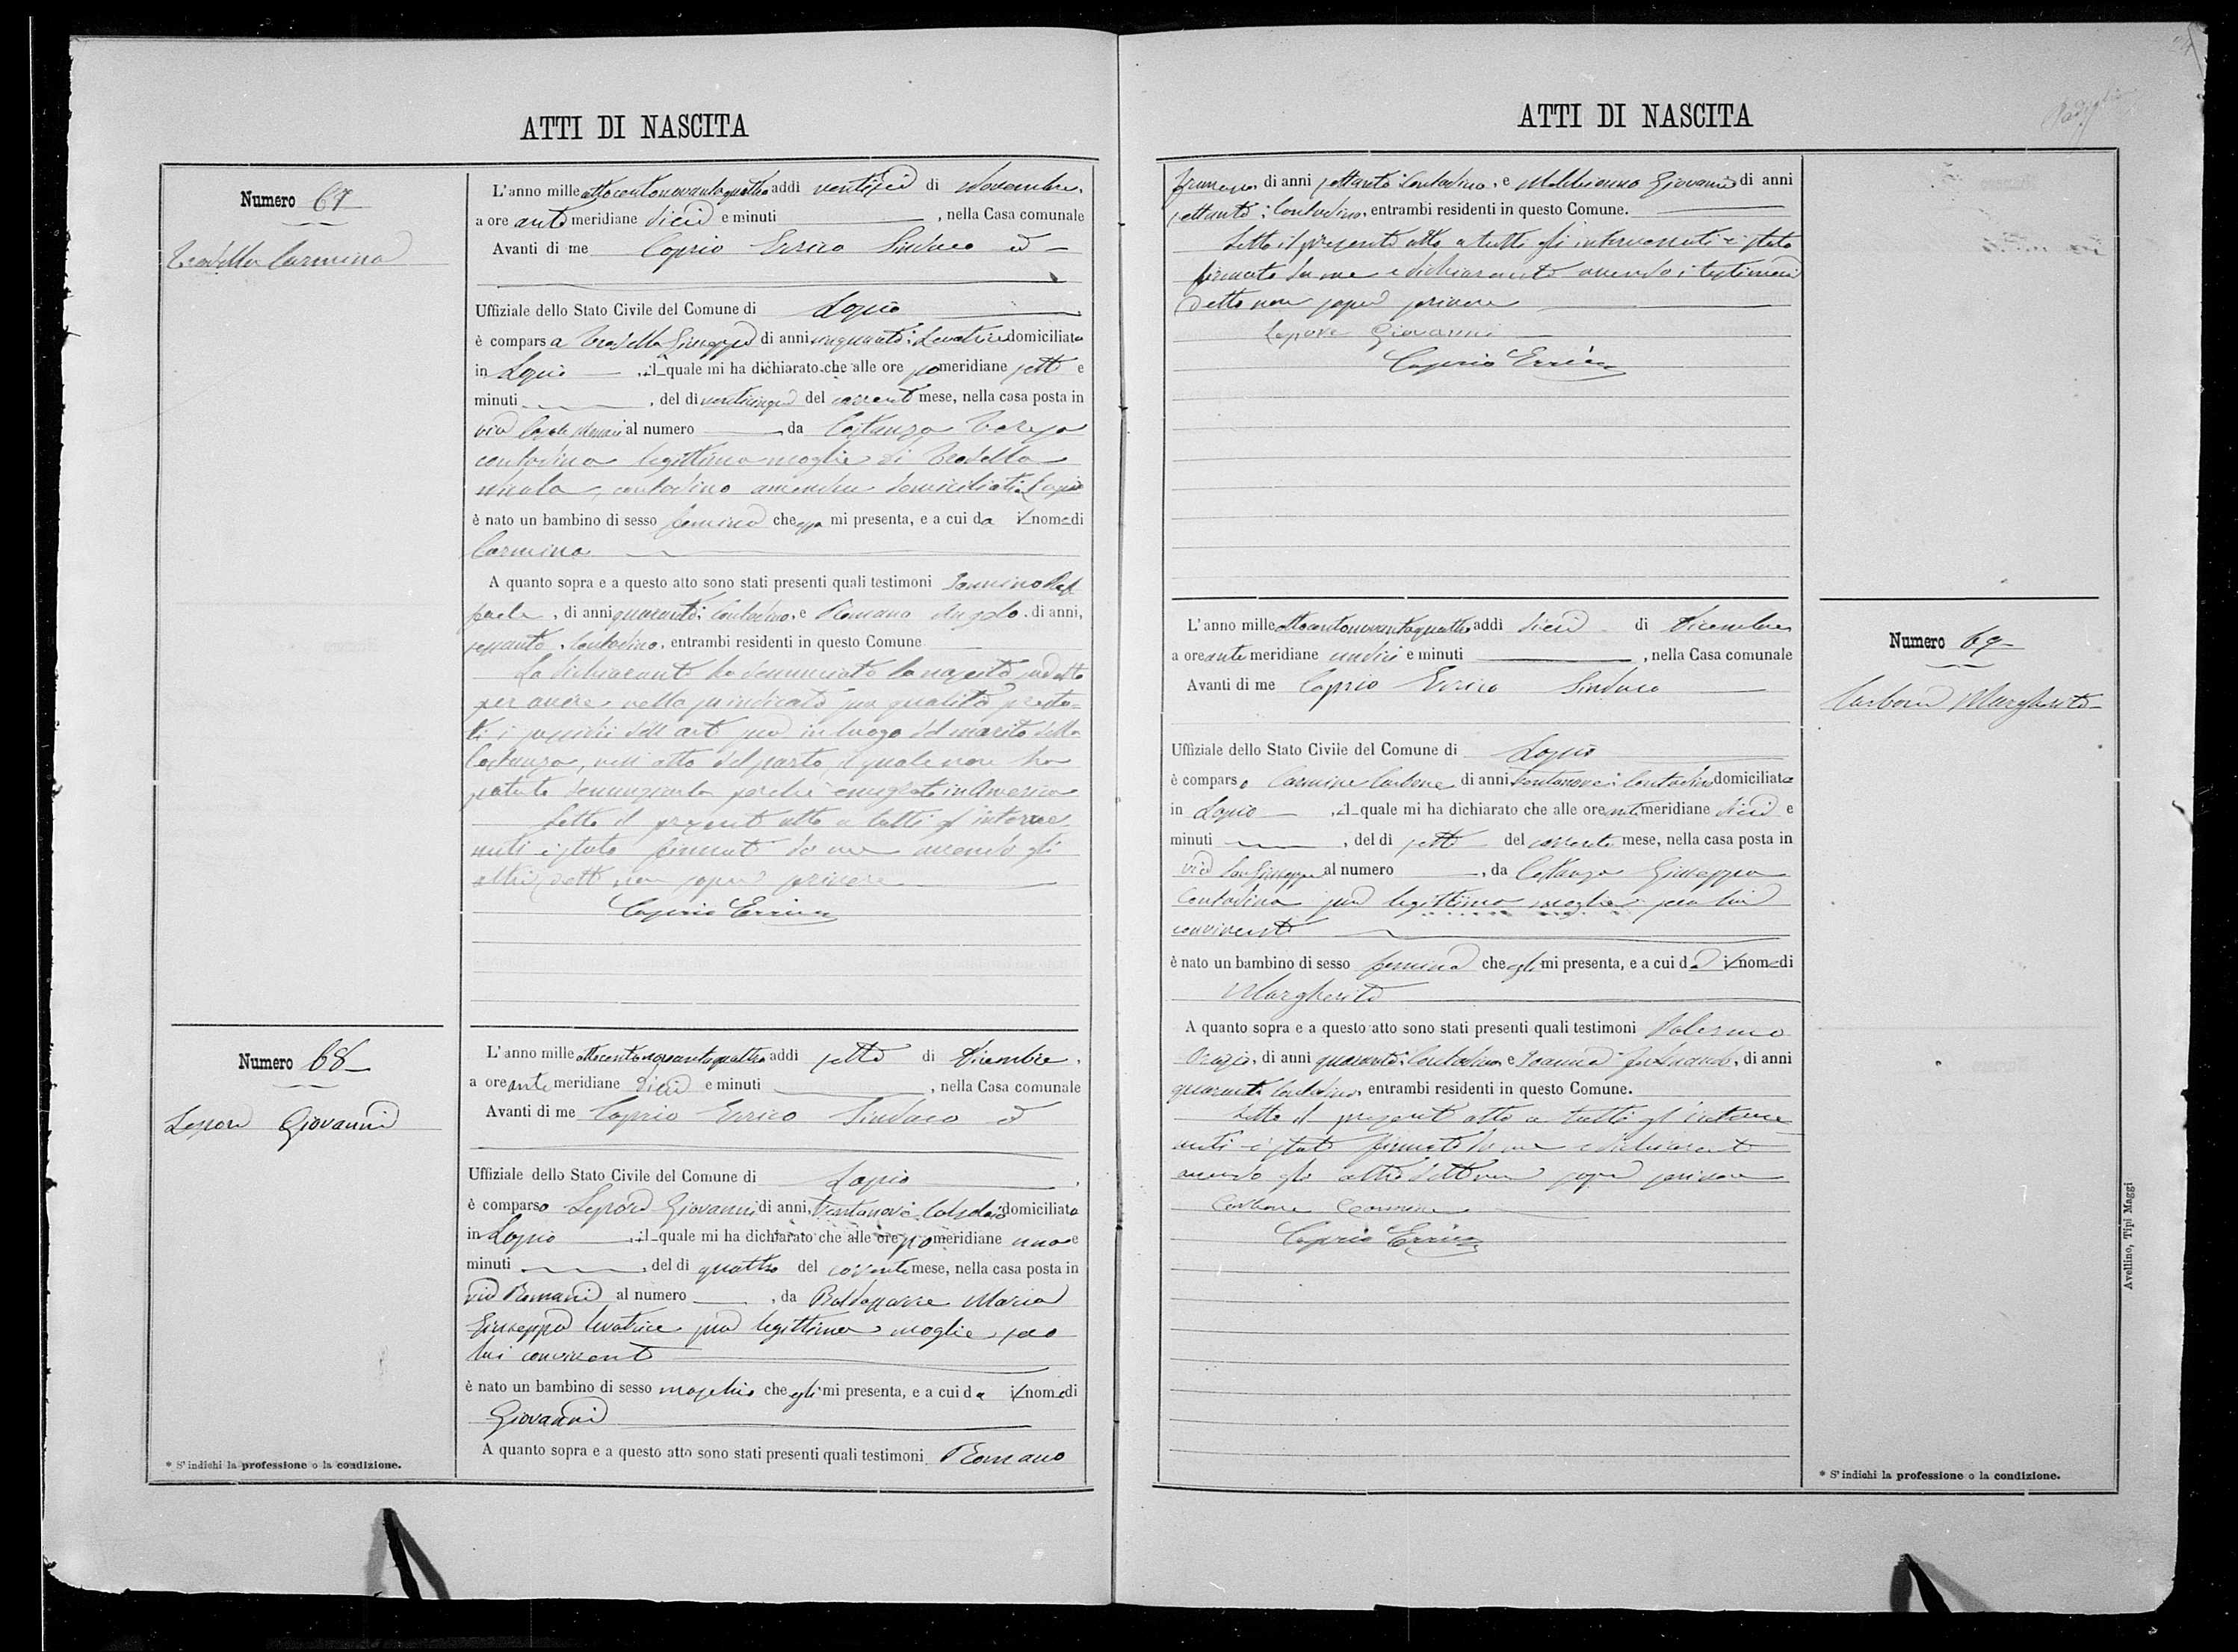 ATTI DI NASCITA
Numero 67
Tradella Carmina
L'anno mille ottocentonovantaquattro addi ventisei di Novembre,
a ore anti meridiane dieci e minuti , nella Casa comunale
Avanti di me Caprio Errico Sindaco ed
Uffiziale dello Stato Civile del Comune di Lapio
è comparsa Tradella Giuseppa di anni cinquanta; Levatrice domiciliata
in Lapio , il quale mi ha dichiarato che alle ore pomeridiane sette e
minuti , del dì venticinque del corrente mese, nella casa posta in
via al numero da Costanza Teresa
contadina legittima moglie di Tradella
Nicola, contadino amendue domiciliati Lapio
è nato un bambino di sesso feminino che essa mi presenta, e a cui da il nome di
Carmina
A quanto sopra e a questo atto sono stati presenti quali testimoni Iannino Raf
faele, di anni quaranta; Contadino, e Romano Angelo, di anni,
sessanta, Contadino, entrambi residenti in questo Comune
La dichiarante ha denunciato la nascita suddetta
per avere nella suindicata sua qualità presta-
ti i sussidii dell'arte sua in luogo del marito della
Costanza, nell'atto del parto, il quale non ha
potuto denunziarla perchè emigrato in America
Letto il presente atto a tutti gl'interve
nuti è stato firmato da me avendo gli
altri detto non saper scrivere
Caprio Errico
Numero 68
Lepore Giovanni
L'anno mille ottocentonovantaquattro addi sette di Dicembre,
a ore anti meridiane dieci e minuti , nella Casa comunale
Avanti di me Caprio Errico Sindaco ed
Uffiziale dello Stato Civile del Comune di Lapio
è comparso Lepore Giovanni di anni, trentanove; Calzolaio domiciliato
in Lapio , il quale mi ha dichiarato che alle ore pomeridiane una e
minuti , del dì quattro del corrente mese, nella casa posta in
via Romani al numero , da Baldassarre Maria
Giuseppa levatrice sua legittima moglie, seco
lui convivente
è nato un bambino di sesso maschio che egli mi presenta, e a cui da il nome di
Giovanni
A quanto sopra e a questo atto sono stati presenti quali testimoni Romano
* S'indichi la professione o la condizione.
ATTI DI NASCITA
di anni settanta; Contadino, e Giovanni di anni
settanta; Contadino, entrambi residenti in questo Comune.
Letto il presente atto a tutti gli intervenuti è stato
firmato da me e dichiarante avendo i testimoni
detto non saper scrivere
Lepore Giovanni
Caprio Errico
L'anno mille ottocentonovantaquattro addi dieci di Dicembre
a ore anti meridiane undici e minuti , nella Casa comunale
Avanti di me Caprio Errico Sindaco
Uffiziale dello Stato Civile del Comune di Lapio
è comparso Carmine Carbone di anni trentanove; Contadino domiciliato
in Lapio , il quale mi ha dichiarato che alle ore antimeridiane dieci e
minuti , del dì sette del corrente mese, nella casa posta in
via San Giuseppe al numero , da Costanza Giuseppa
Contadina sua legittima moglie seco lui
convivente
è nato un bambino di sesso feminino che egli mi presenta, e a cui dà il nome di
Margherita
A quanto sopra e a questo atto sono stati presenti quali testimoni Palermo
Orazio, di anni quaranta; Contadino, e Ioanna Ferdinando, di anni
quaranta Contadino, entrambi residenti in questo Comune.
Letto il presente atto a tutti gl'interve
nuti è stato firmato da me e dichiarante
avendo gli altri detto non saper scrivere
Carbone Carmine
Caprio Errico
Numero 69
Carbone Margherita
* S'indichi la professione o la condizione.
Avellino, Tipi Maggi